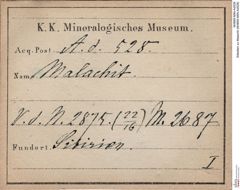 K. K. Mineralogisches Museum.
Acq. Post. A. d. 528.
Name Malachit.
V. d. N. 2875. (22/16) M. 2687
Fundort. Sibirien.
I